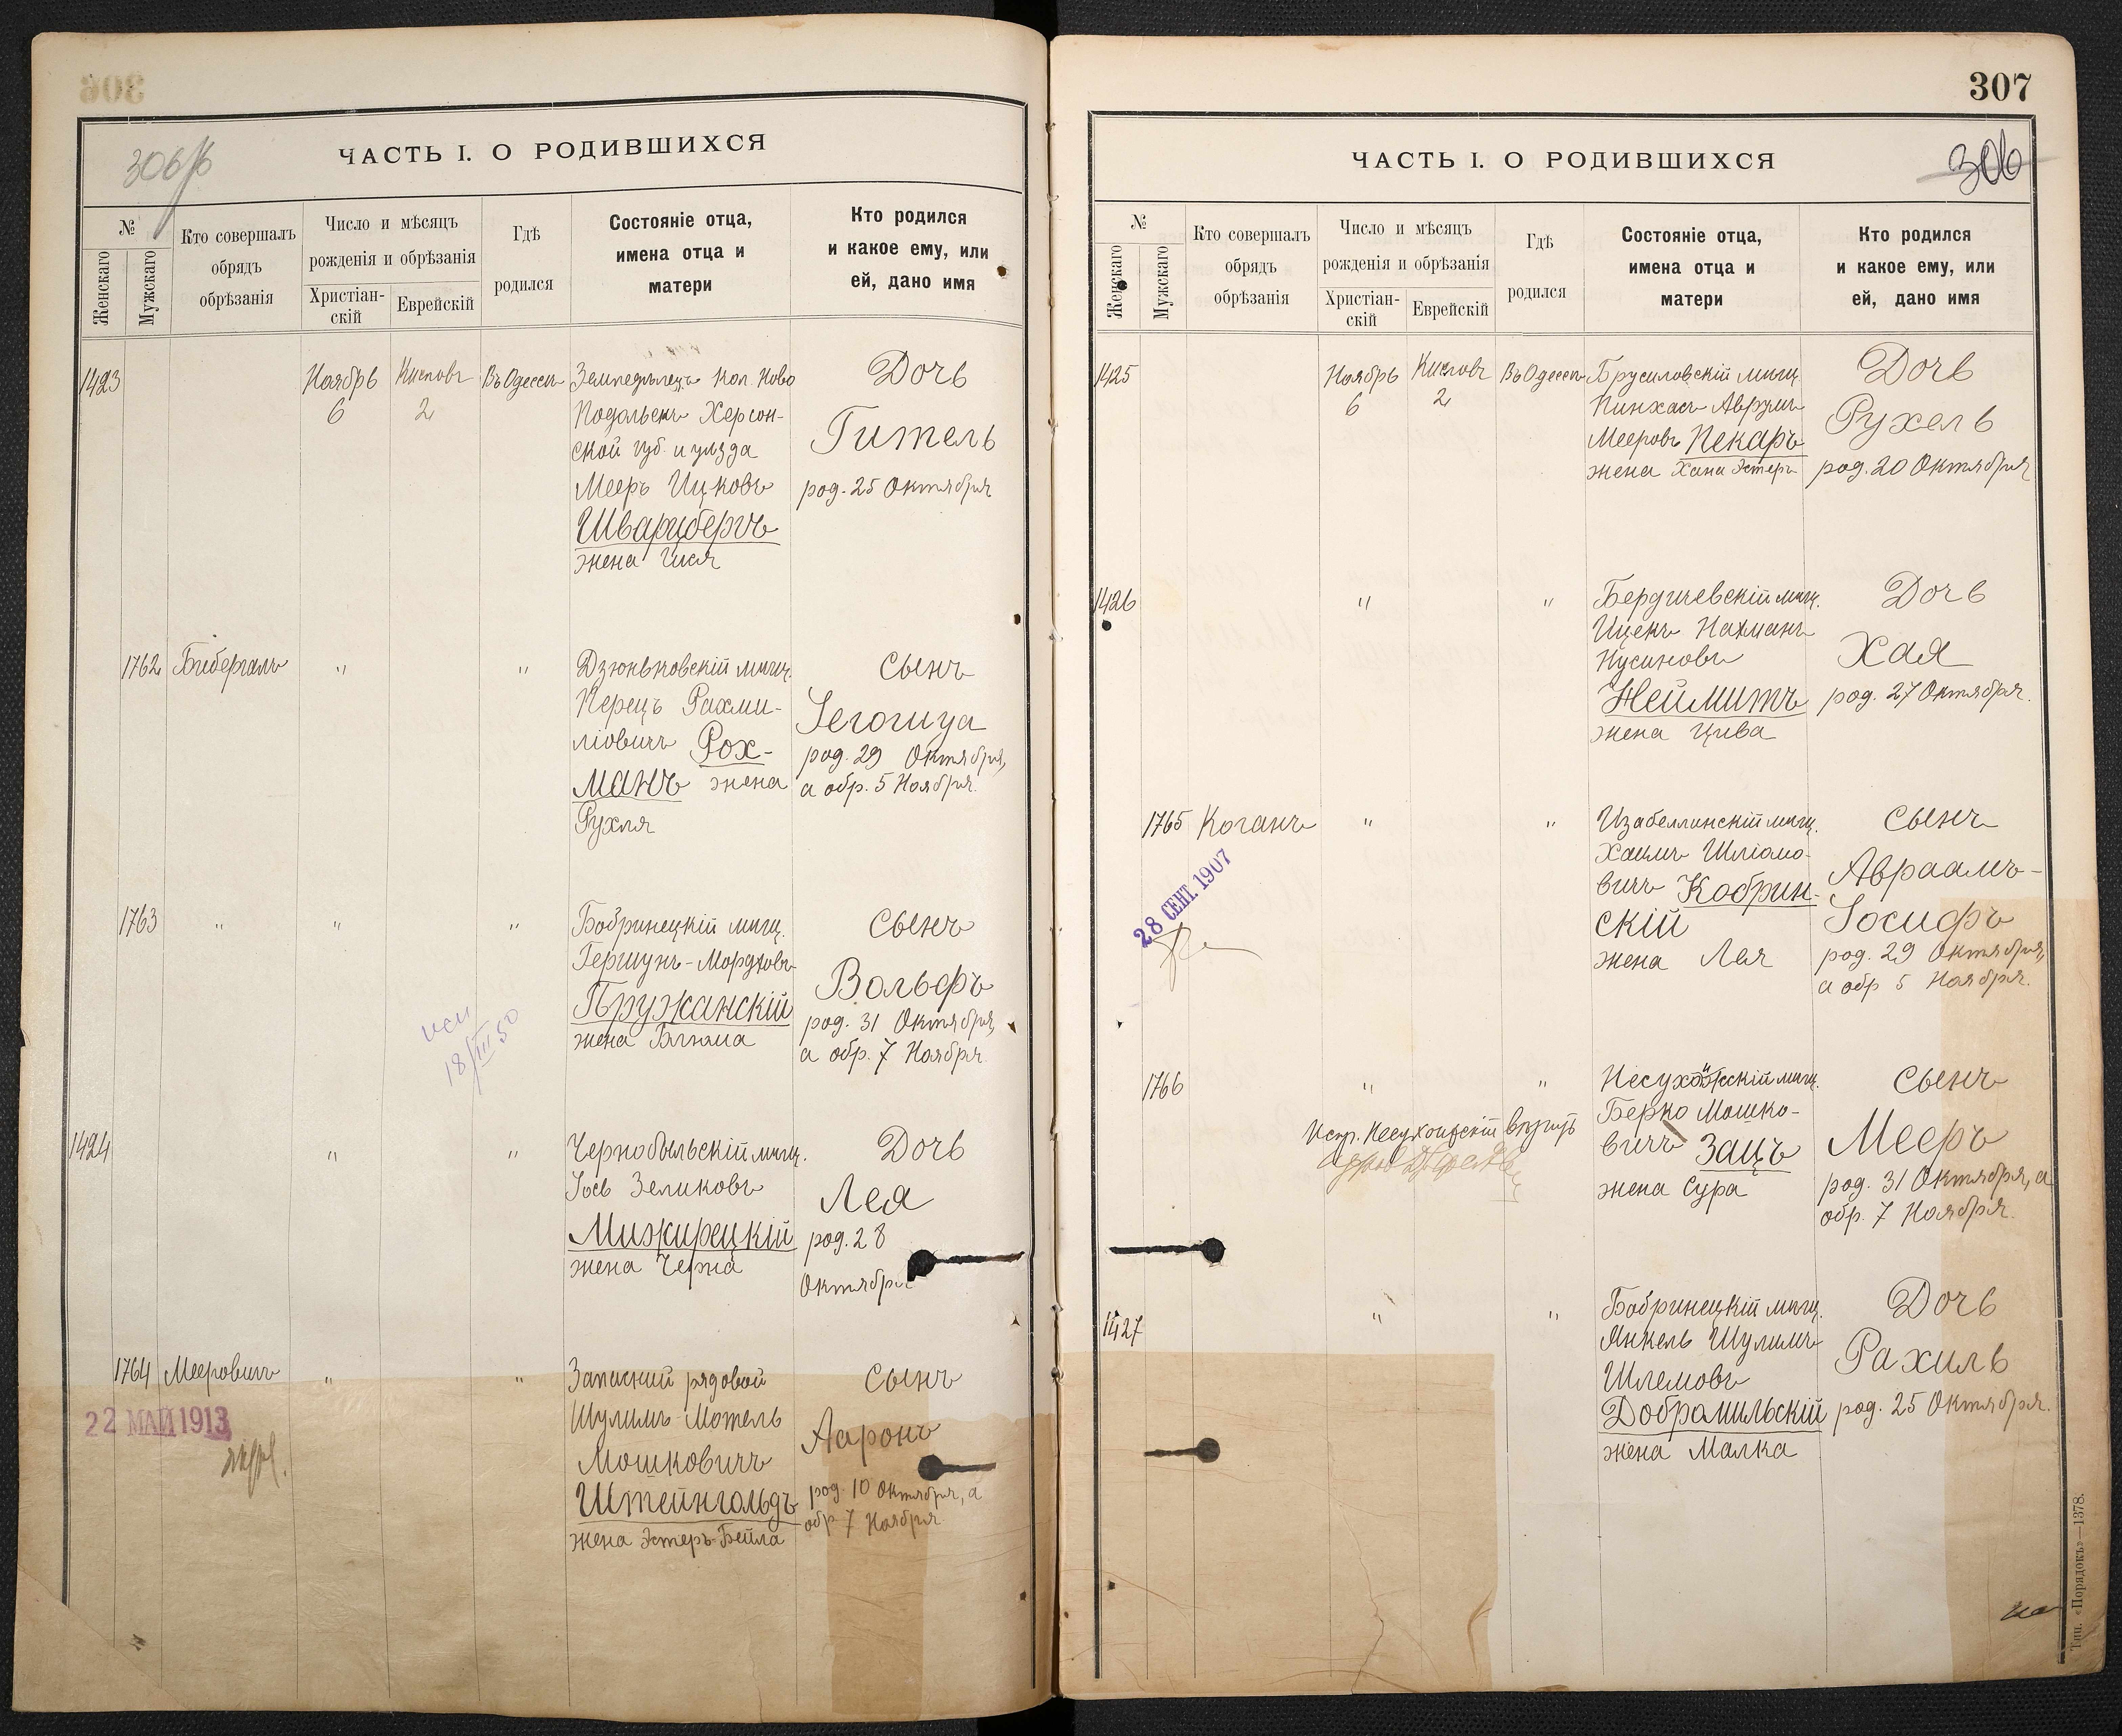 306
306 об
ЧАСТЬ I. О РОДИВШИХСЯ
№
Женскаго
Мужскаго
Кто совершалъ
обрядъ
обрѣзанія
Число и мѣсяцъ
рожденія и обрѣзанія
Христіан-
скій
Еврейскій
Гдѣ
родился
Состояніе отца,
имена отца и
матери
Кто родился
и какое ему, или
ей, дано имя
1423
Ноябрь
6
Кисловъ
2
Въ Одессѣ
Земледѣлецъ кол. Ново
Подольскъ Херсон-
ской губ. и уѣзда
Мееръ Ицковъ
Шварцбергъ
жена Гися
Дочь
Гитель
род. 25 Октября
1762
Бибергалъ
"
"
Дзюньковскій мѣщ.
Перецъ Рахми-
ліовичъ Рох-
манъ жена
Рухля
Сынъ
Іегошуа
род. 29 Октября,
а обр. 5 Ноября.
1763
"
"
"
Бобринецкій мѣщ.
Гершунъ-Мордховъ
Пружанскій
жена Блюма
Сынъ
Вольфъ
род. 31 Октября,
а обр. 7 Ноября
18/III 50
1424
"
"
Чернобыльскій мѣщ.
Іось Зеликовъ
Мижирецкій
жена Черна
Дочь
Лея
род. 28
Октября
1764
Мееровичъ
"
"
Запасный рядовой
Шулимъ-Мотель
Мошковичъ
Штейнгольдъ
жена Эстеръ-Бейла
Сынъ
Ааронъ
род. 10 Октября, а
обр 7 Ноября
22 МАЙ 1913
307
306
ЧАСТЬ I. О РОДИВШИХСЯ
№
Женскаго
Мужскаго
Кто совершалъ
обрядъ
обрѣзанія
Число и мѣсяцъ
рожденія и обрѣзанія
Христіан-
скій
Еврейскій
Гдѣ
родился
Состояніе отца,
имена отца и
матери
Кто родился
и какое ему, или
ей, дано имя
1425
Ноябрь
6
Кисловъ
2
Въ Одессѣ
Брусиловскій мѣщ
Пинхасъ Аврумъ
Мееровъ Пекаръ
жена Хана Эстеръ
Дочь
Рухель
род. 20 Октября
1426
"
"
Бердичевскій мѣщ.
Ицекъ Нахманъ
Нусиновъ
Неймитъ
жена Цива
Дочь
Хая
род. 27 Октября.
1765
Коганъ
"
"
Изабеллинскій мѣщ.
Хаимъ Шліомо-
вичъ Кобрин-
скій
жена Лея
Сынъ
Авраамъ-
Іосифъ
род. 29 Октября,
а обр 5 Ноября.
28 СЕНТ. 1907
1766
"
"
Несухоижскій мѣщ.
Берко Мошко-
вичъ Зацъ
жена Сура
Сынъ
Мееръ
род. 31 Октября, а
обр. 7 Ноября.
Испр. Несухоижскій
1427
"
"
Бобринецкій мѣщ.
Янкель Шулимъ
Шлемовъ
Добромильскій
жена Малка
Дочь
Рахиль
род. 25 Октября.
Тип. «Порядокъ»—1378.